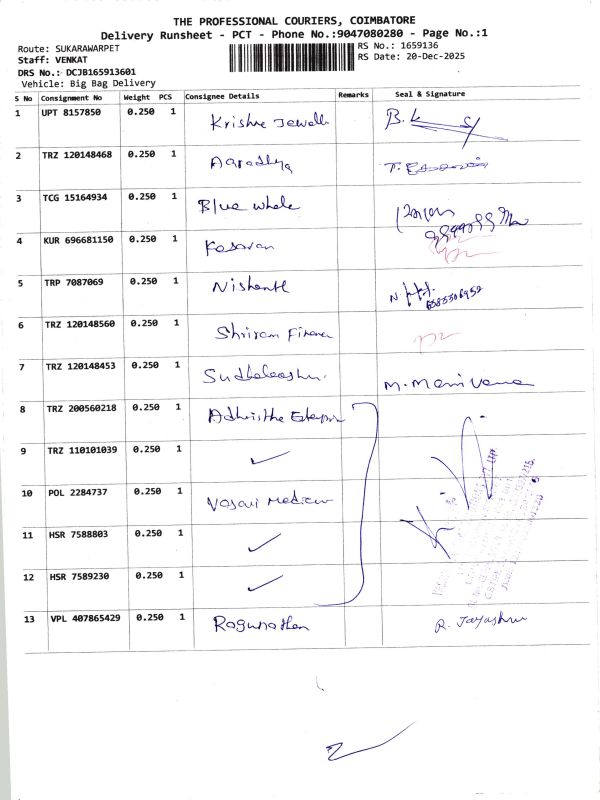 THE PROFESSIONAL COURIERS, COIMBATORE
Delivery Runsheet - PCT - Phone No.:9047080280 - Page No.:1
Route: SUKARAWARPET
RS No.: 1659136
Staff: VENKAT
RS Date: 20-Dec-2025
DRS No.: DCJB165913601
Vehicle: Big Bag Delivery
S No Consignment No Weight PCS Consignee Details Remarks Seal & Signature
1 UPT 8157850 0.250 1 Krishna Jewell B.k
2 TRZ 120148468 0.250 1 Aaradhya
3 TCG 15164934 0.250 1 Blue whale
4 KUR 696681150 0.250 1 Kesavan
5 TRP 7087069 0.250 1 Nishanth
6 TRZ 120148560 0.250 1 Shriram Finance
7 TRZ 120148453 0.250 1 M. Manivanna
8 TRZ 200560218 0.250 1
9 TRZ 110101039 0.250 1 ✓
10 POL 2284737 0.250 1 Vasavi Medicum
11 HSR 7588803 0.250 1 ✓
12 HSR 7589230 0.250 1 ✓
13 VPL 407865429 0.250 1 Ragunathan R. Jayashree